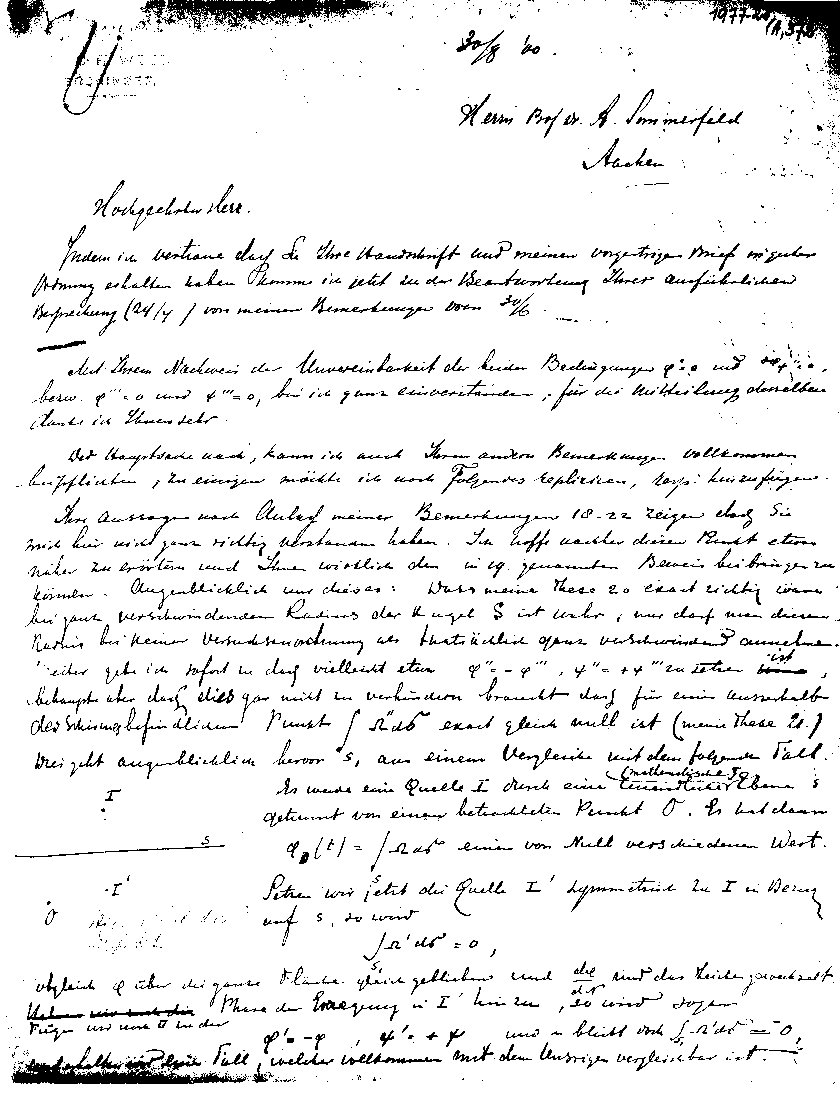 1977-28 (A,378
30/8 '00.
Herrn Prof Dr. A. Sommerfeld
Aachen
Hochgeehrter Herr.
Indem ich vertraue dass Sie Ihre Handschrift und meinen vorgestrigen Brief in guter
Ordnung erhalten haben komme ich jetzt zu der Beantwortung Ihrer ausführlichen
Besprechung (24/7) von meinen Bemerkungen vom 30/6.
Mit Ihrem Nachweis der Unvereinbarkeit der beiden Bedingungen φ"=0 und
bezw. φ'''=0 und ψ'''=0, bin ich ganz einverstanden, für die Mitteilung desselben
danke ich Ihnen sehr.
Der Hauptsache nach, kann ich auch Ihren andern Bemerkungen vollkommen
beipflichten, zu einigen möchte ich noch Folgendes repliziren, resp: hinzufügen.
Ihre Aussagen nach Anlass meiner Bemerkungen 18-22 zeigen dass Sie
mich hier nicht ganz richtig verstanden haben. Ich hoffe nachher diesen Punkt etwas
näher zu erörtern und Ihnen wirklich den in 19. genannten Beweis beibringen zu
können. Augenblicklich nur dieses: Dass meine These 20 exact richtig wäre
bei ganz verschwindendem Radius der Kugel S ist wahr, nur darf man diesen
Radius bei keiner Versuchsanordnung als thatsächlich ganz verschwindend annehmen.
gebe ich sofort zu dass vielleicht etwa φ"=-φ''', ψ"=+ψ''' zu setzen ist,
behaupte aber dass dies gar nicht zu verhindern braucht dass für einen ausserhalb
des Schirms befindlichen Punkt ∫Ω"dσ exact gleich null ist (meine These 21.)
Dies geht augenblicklich hervor aus einem Vergleiche mit dem folgenden Fall.
I
Es werde eine Quelle I durch eine (mathematische) unendliche Ebene s
getrennt von einem betrachteten Punkt O. Es hat dann
s
φ₀(t) = ∫Ωdσ einen von Null verschiedenen Wert.
s
I'
O
Setzen wir jetzt die Quelle I' symmetrisch zu I in Bezug
auf s, so wird
∫Ω'dσ = 0,
s
obgleich φ über die ganze Fläche gleich geblieben und dφ/dν nur das Zeichen gewechselt.
Fügen wir nun π zu der Phase der Erregung in I' hinzu, so wird sogar
φ'=-φ, ψ'=+ψ und es bleibt doch ∫Ω'dσ = 0,
s
Fall, welcher vollkommen mit dem Unsrigen vergleichbar ist.